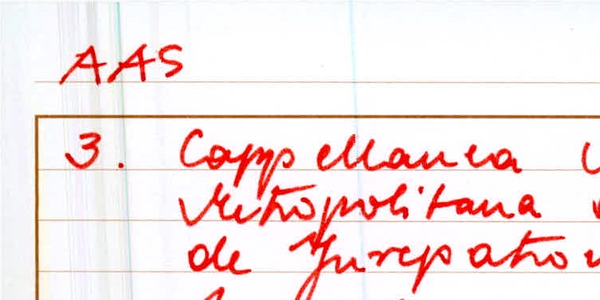 AAS
3. Cappellania
Metropolitana
de Jurepatro